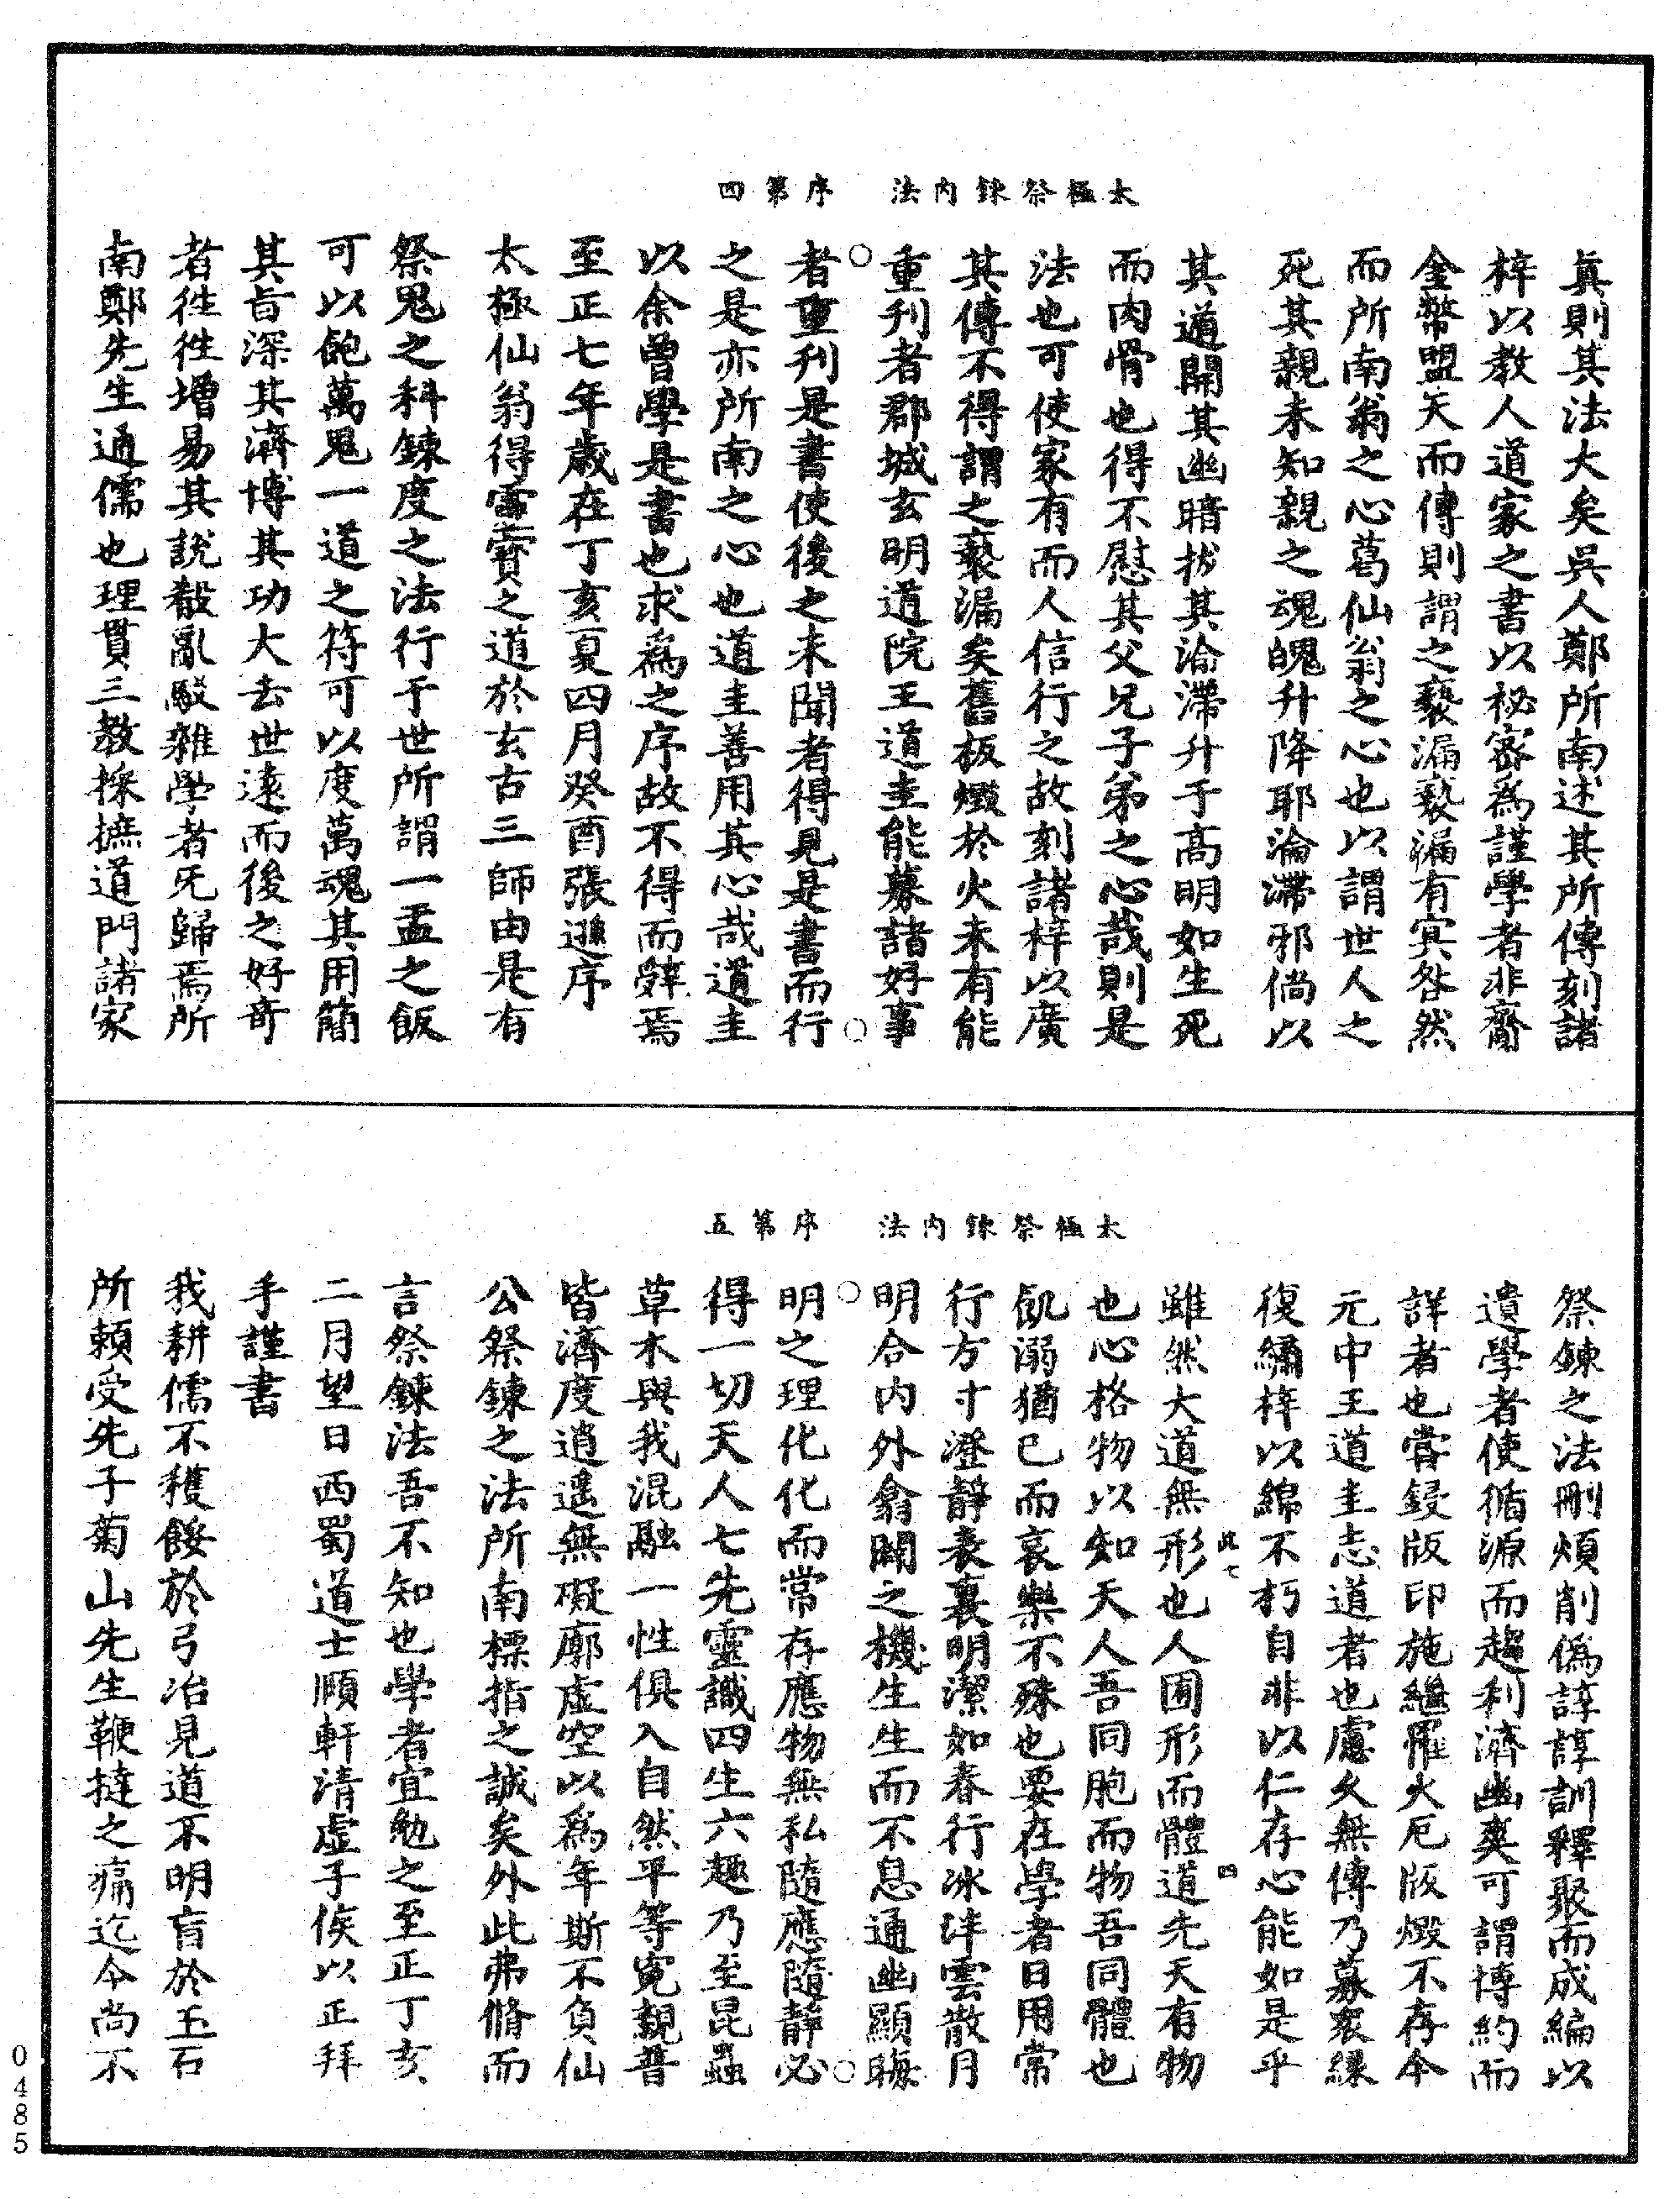 太極祭鍊內法　序第四
眞則其法大矣吳人鄭所南述其所傳刻諸
梓以教人道家之書以秘密爲謹學者非齎
金幣盟天而傳則謂之褻漏褻漏有冥咎然
而所南翁之心葛仙翁之心也以謂世人之
死其親未知親之魂魄升降耶淪滯邪倘以
其道開其幽暗拔其淪滯升于高明如生死
而肉骨也得不慰其父兄子弟之心哉則是
法也可使家有而人信行之故刻諸梓以廣
其傳不得謂之褻漏矣舊板燬於火未有能
重刊者郡城玄明道院王道圭能募諸好事
者重刊是書使後之未聞者得見是書而行
之是亦所南之心也道圭善用其心哉道圭
以余曾學是書也求爲之序故不得而辭焉
至正七年歲在丁亥夏四月癸酉張遜序
太極仙翁得靈寶之道於玄古三師由是有
祭鬼之科鍊度之法行于世所謂一盂之飯
可以飽萬鬼一道之符可以度萬魂其用簡
其旨深其濟博其功大去世遠而後之好奇
者徃徃增易其說殽亂駁雜學者旡歸焉所
南鄭先生通儒也理貫三教採摭道門諸家
太極祭鍊內法　序第五
祭鍊之法刪煩削僞諄諄訓釋聚而成編以
遺學者使循源而趨利濟幽爽可謂博約而
詳者也嘗鋟版印施繼罹火厄版燬不存今
元中王道圭志道者也慮久無傳乃募衆緣
復繡梓以綿不朽自非以仁存心能如是乎
雖然大道無形也人囿形而體道先天有物
也心格物以知天人吾同胞而物吾同體也
飢溺猶己而哀樂不殊也要在學者日用常
行方寸澄靜表裏明潔如春行冰泮雲散月
明合內外翕闢之機生生而不息通幽顯晦
明之理化化而常存應物無私隨應隨靜必
得一切天人七先靈識四生六趣乃至昆蟲
草木與我混融一性俱入自然平等寃親普
皆濟度逍遥無礙廓虛空以爲年斯不負仙
公祭鍊之法所南標指之誠矣外此弗脩而
言祭鍊法吾不知也學者宜勉之至正丁亥
二月望日西蜀道士順軒清虛子侯以正拜
手謹書
我耕儒不穫餒於弓冶見道不明盲於玉石
所頼受先子菊山先生鞭撻之痛迄今尚不
0485